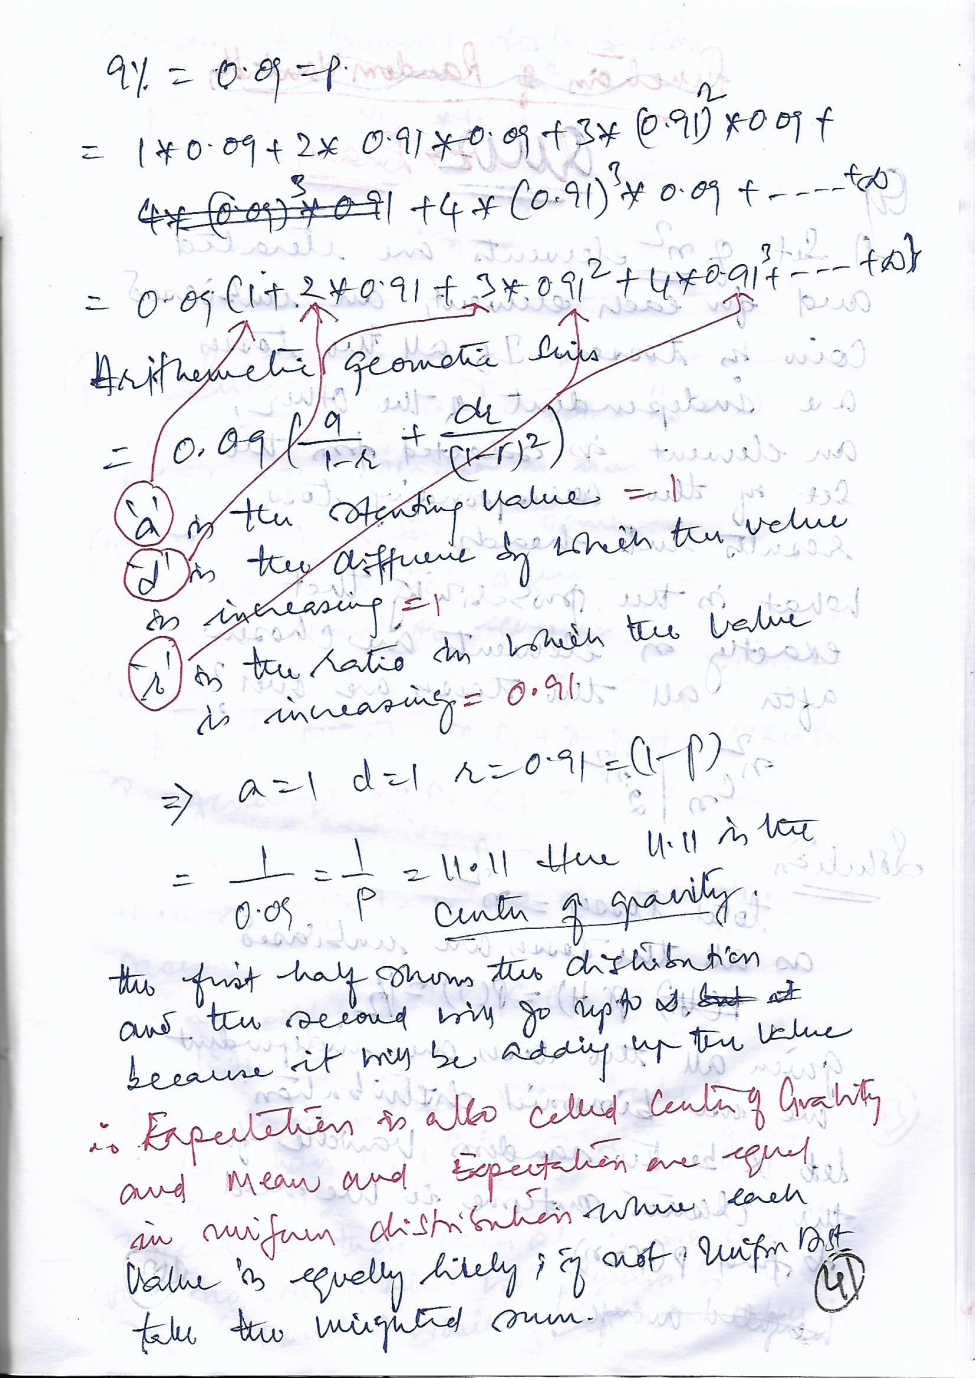 9% = 0.09 = P.
= 1*0.09 + 2* 0.91*0.09 + 3* (0.91)^2 *0.09 +
4* (0.09)^3 * 0.91 +4*(0.91)^3 * 0.09 + ----- +∞
= 0.09 (1+ 2*0.91 + 3*0.91^2 + 4*0.91^3 + --- +∞)
Arithemetic geometic series
= 0.09 ( a/(1-r) + dr/(1-r)^2 )
'a' is the starting value = 1
'd' is the difference by which the value
is increasing = 1
'r' is the ratio in which the value
is increasing = 0.91
=> a=1 d=1 r=0.91 = (1-P)
= 1/0.09 = 1/P = 11.11 Here 11.11 is the
center of gravity.
the first half shows the distribution
and the second will go up to ∞, but it
because it will be adding up the value
∴ Expectation is also called Center of Gravity
and Mean and Expectation are equal
in uniform distribution where each
value is equally likely; if not Unifm Dist
take the weighted sum.
41